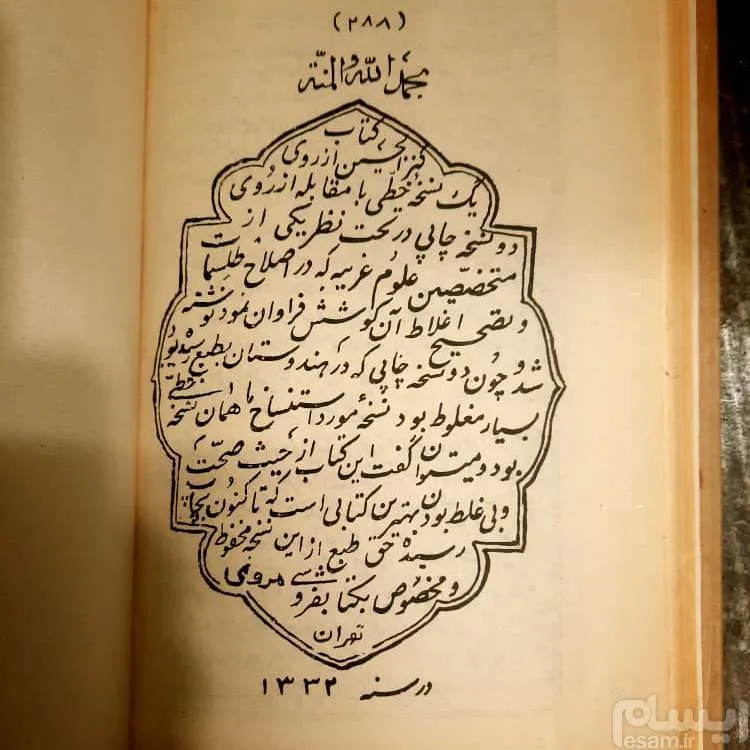 (۲۸۸)
بحمد الله والمنة
کتاب
کنز الحسین از روی
یک نسخه خطّی با مقابله از رُوی
دو نسخه چاپی در تحت نظر یکی از
متخصّصین علوم غریبه که در اصلاح طلسمات
و تصحیح اغلاط آن کوشش فراوان نمود نوشته
شد و چون دو نسخه چاپی که در هندوستان بطبع رسیده بو
بسیار مغلوط بود نسخهٔ مورد استنساخ ما همان نسخه خطّی
بود و میتوان گفت این کتاب از حیث صحّت
و بی غلط بودن بهترین کتابی است که تا کنون بچاپ
رسیده حق طبع از این نسخه محفوظ
و مخصوص بکتابفروشی مروی
تهران
در سنه ۱۳۳۲
ایسام
esam.ir